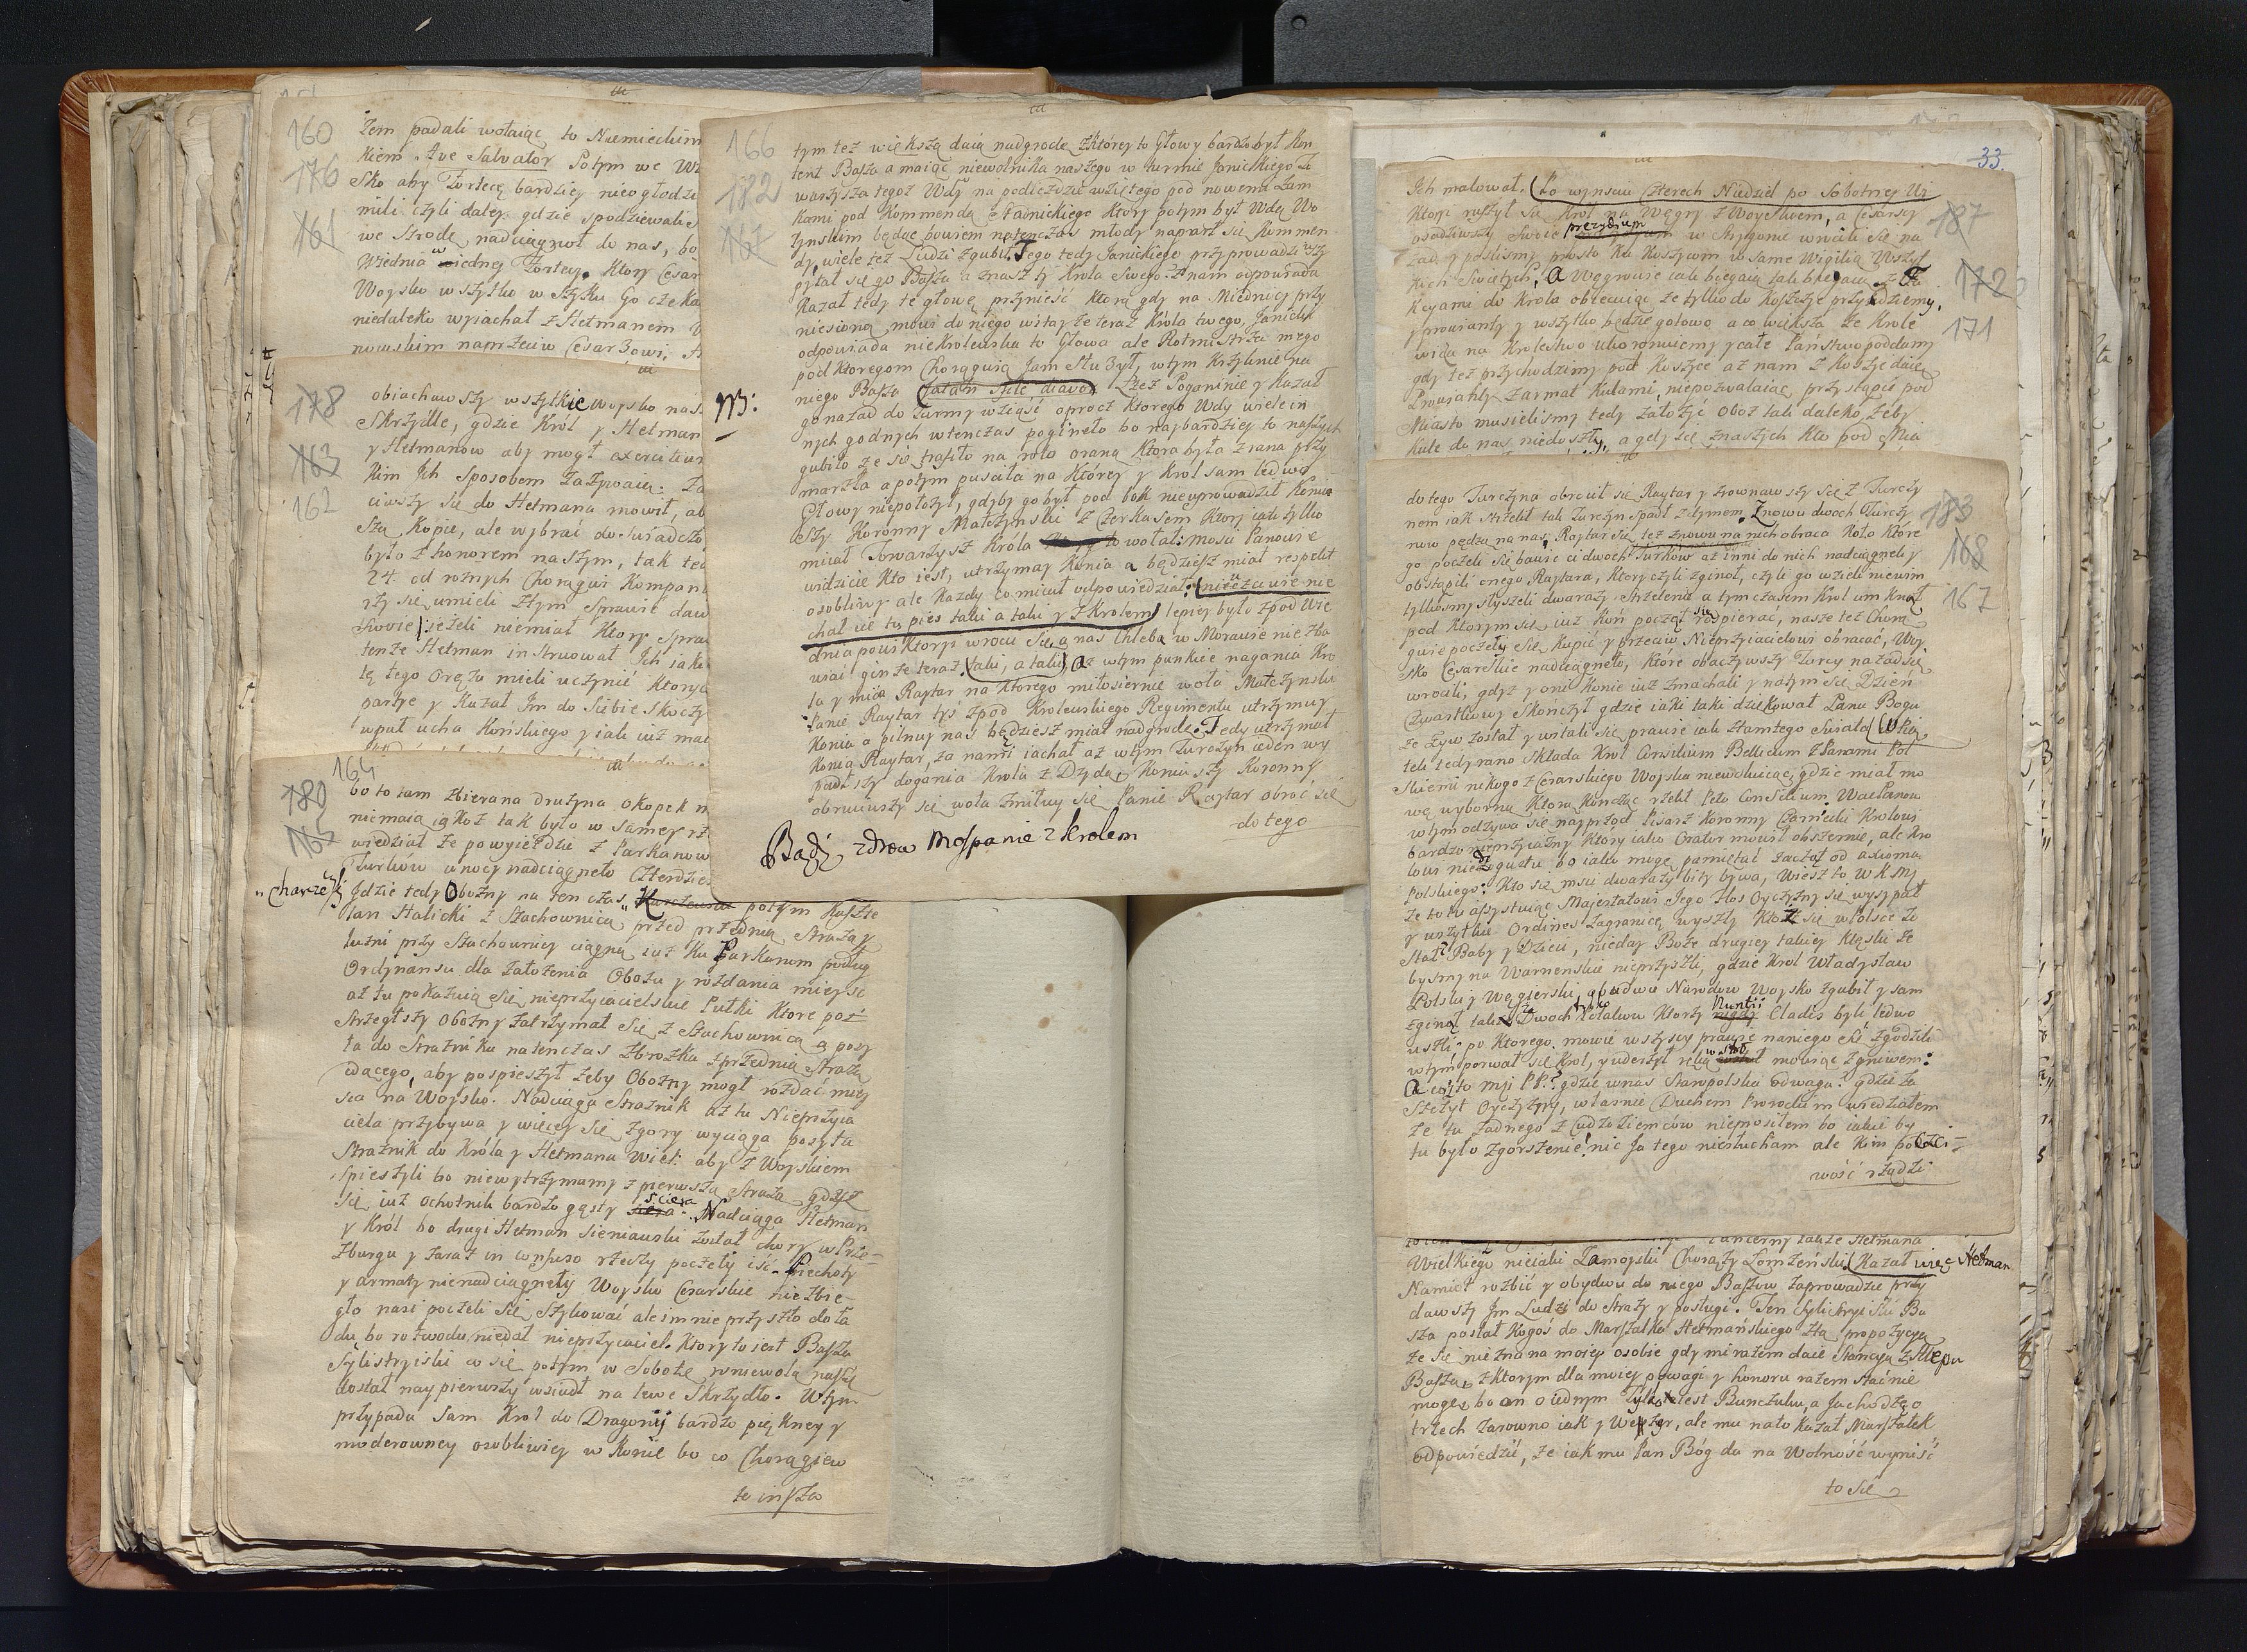 160
176
161
żem padali wołaiąc to Niemieckim
kiem Ave Salvator Potym we Wt
sko aby Fortecę bardziey nieogłodzi
mili czyli daley gdzie spodziewalie
we Srodę nadciągnoł do nas, bo
Wiednia w iedney Fortecy. Ktory Cesar
Woysko wszytko w szyku Go czeka
niedaleko wyiachał z Hetmanem
nowskim naprzeciw Cesarzowi,
178
163
162
obiachawszy wszytkie woysko nas
Skrzydle, gdzie Krol y Hetman
y Hetmanow aby mogł exercitium
kim Ich Sposobem zażywaią. Za
ciwszy się do Hetmana mowił, ab
szą Kopie, ale wybrać doświadczo
było z honorem naszym, tak ted
24. od rożnych Chorągwi Kompani
rzy się umieli z tym sprawić daw
Słowie jeżeli niemiał Ktory spraw
tenże Hetman instruował Ich iako
tę tego Oręża mieli uczynić Ktorych
partye y Kazał Im do Siebie skoczy
w puł ucha Końskiego y iak iuż maią
164
180
165
bo to tam zbierana drużyna okopek m
niemaią iakoż tak było w samey rz
wiedział że powyieżdzie z Parkanow
Turkow w nocy nadciągneło Czterdzieś
„Charzęski
Gdzie tedy Obozny na ten czas „ potym Kaszte
lan Halicki z Szachownicą przed przednią Strażą y
luźni przy Szachownicy ciągną iuż Ku Parkanom podług
Ordynansu dla założenia Obozu y rozdania mieysc
aż tu pokazuią się nieprzyiacielskie Pułki Ktore poz
strzegłszy Obozny zatrzymał się z Szachownicą a posy
ła do Strażnika natenczas Zbrożka z przednią Strażą
idącego, aby pospieszył żeby Obozny mogł rozdać miey
sca na Woysko. Nadciąga Strażnik aż tu Nieprzyia
ciela przybywa y więcey się z gory wyciąga posyła
Strażnik do Króla y Hetmana Wiel: aby z Woyskiem
spieszyli bo niewytrzymamy z pierwszą Strażą gdyż
się iuż ochotnik bardzo gęsty sciera. Nadciąga Hetman
y Król bo drugi Hetman Sieniawski został chory w Prze-
zburgu y zaraz in conpuso rzeczy poczęły iść. Piechoty
y armaty nienadciągnęły Woysko Cesarskie niezbie-
gło nasi poczeli się szykować ale im nie przyszło do ła
du bo rozwodu niedał nieprzyiaciel. Ktory to iest Basza
Sylistryiski co się potym w Sobotę w niewolą naszę
dostał naypierwszy wsiadł na lewe Skrzydło. W tym
przypada Sam Krol do Dragonij bardzo piękney y
moderowney osobliwiey w Konie bo co Chorągiew
to inszа
166
182
167
tym też większą daią nadgrodę z którey to Głowy bardzo był Kon
tent Basza a maiąc niewolnika naszego w turmie Janickiego To
warzysza tegoż Wdy na podieździe wziętego pod nowemi Zam
kami pod Kommendą Stadnickiego Ktory potym był Wdą Wo
łynskim będąc bowiem natenczas młody naparł się Kommen
dy, wiele też Ludzi zgubił. Tego tedy Janickiego przyprowadziwszy
pytał się go Basza a znasz ty Krola Swego? znam odpowiada
Kazał tedy tę głowę przynieść Którą gdy na Miednicy przy
niesiono, mowi do niego witay że teraz Króla twego, Janicki
odpowiada nie Krolewska to Głowa ale Rotmistrza mego
pod Ktoregom Chorągwią Jam Służył, w tym Krzyknie na
NB:
niego Basza (atam siele diavol) Łżesz Poganinie y Kazał
go nazad do Turmy wziąść oprocz Ktorego Wdy wiele in
nych godnych wtenczas poginęło bo naybardziey to naszych
gubiło że się trafiło na rolo oraną Ktora była z rana przy
marzła a potym puściła na Którey y Krol sam ledwo
Głowy niepołożył, gdyby go był pod bok nieuprowadził Koniu
szy Koronny Matczynski z Czerkasem Ktory iak tylko
miiał Towarzysz Króla to wołał: Mości Panowie
widzicie Kto iest, utrzymay Konia a będziesz miał respekt
osobliwy ale Kazdy co miiał odpowiedział:
chał cię tu pies taki a taki y z Krolem) lepiey było z pod Wie
dnia powiktoryi wrocić się, a nas Chleba w Morawie niezba
wiać giń że teraz (taki, a taki) Aż w tym punkcie nagania Kro
la y miia Raytar na Ktorego miłosiernie woła Matczynski
Panie Raytar tyś z pod Krolewskiego Regimentu utrzymay
Konia a pilnuy nas będziesz miał nadgrodę. Tedy utrzymał
Konia Raytar, za nami iachał aż w tym Turczyn ieden wy
padłszy dogania Krola z Dzydą, Koniuszy Koronny
obruciwszy się woła zmiłuy się Panie Raytar obroć się
do tego
Bądź zdrow Mospanie z krolem
33.
187
172
171
Ich malował. (Po wynsciu Czterech Niedziel po Sobotniey Wi
ktoryi ruszył się Król na Węgry z Woyskiem, a Cesarscy
osadziwszy swoie prezydium w Strygonie wrócili się na
zad y poslismy prosto Ku Koszycom w same Wigilią Wszyt
kich Swiętych, A Węgrowie iak biegaią tak biegaią z Tra
ktyami do Krola obiecuiąc że tylko do Koszyc przyydziemy,
y prowianty y wszytko będzie gotowo a co większa że Krole
wica na Krolestwo ukoronuiemy y całe Państwo poddamy
gdy też przychodzimy pod Koszyce aż nam z Koszyc daią
z armat Kulami, niepozwalaiąc przystąpić pod
Miasto musielismy tedy założyć Oboz tak daleko, żeby
Kule do nas niedoszły, a gdy się z naszych Kto pod Mia
183
168
167
do tego Turczyna obrocił się Raytar y zrownawszy się z Turczy
nem iak strzelił tak Turczyn spadł z dymem. Znowu dwoch Turczy
now pędzą na nas, Raytar się też znowu na nich obraca Koło Ktore
go poczeli się bawić ci dwoch Turkow aż inni do nich nadciągneli y
obstąpili onego Raytara, Ktory czyli zginoł, czyli go wzieli niewim
tylkosmy słyszeli dwa razy strzelenia a tymczasem Krol umknoł
pod Ktorym się iuż Koń począł rospierać, nasze też Chorą
gwie poczęły się Kupić y przeciw Nieprzyiacielowi obracać, Woy
sko Cesarskie nadciągneło, Ktore obaczywszy Turcy nazad się
wrocili, gdyż y oni Konie iuż zmachali y na tym się Dzień
Czwartkowy skończył gdzie iaki taki dziękował Panu Bogu
że żyw został y wstali się prawie iak z tamtego Swiata (w Pią
tek tedy rano składa Krol Consilium Bellicum z Panami Pol
skiemi nikogo z Cesarskiego Woyska niewokuiąc, gdzie miał mo
wę wyborną Ktorą Kończąc rzekł Peto Consilium. Wacpanow
w tym odzywa się nayprzod Pisarz Koronny Czarnecki Krolowi
bardzo nieprzyiazny Który iako Orator mowił obszernie, ale Kro
lowi nie do gustu bo iako mogę pamiętać zaczął od axioma
Polskiego: Kto się msci dwa razy bity bywa, wiesz to W K Mć
że tu tu assystuiąc Majestatowi Iego Flos Oyczyzny się wysypał
y wszytkie Ordines zagranicę wyszły Ktoż się w Polsce zo
stał? Baby y Dzieci, nieday Boże drugiey takiey Klęski że
bysmy na Warnenskie nieprzyszli, gdzie Krol Władysław
Polski y Węgierski, obudwu Narodow Woysko zgubił y sam
zginoł tak że Dwoch tylko Polakow Ktorzy Nuntii Cladis byli ledwo
uszli po Ktorego mowie wszyscy prawie na niego się zgodzili
w tym porwał się Krol, y uderzył ręką w stoł mowiąc z gniwem:
A coż to myi PP.? gdzie w nas Staropolska odwaga? gdzie za
szczyt Oyczyzny, własnie Duchem Prorockim wiedziałem
że tu żadnego z Cudzoziemców nieprosiłem bo iakie by
tu było zgorszenie! nic Ja tego niesłucham ale Kim poczci-
wość rządzi
Pancerny także Hetmana
Wielkiego nieiaki Zamoyski Chorąży Łomżeński (Kazał więc Hetman
Namiot rozbić y obydwu do niego Baszow zaprowadzić przy
dawszy Im Ludzi do Straży y posługi. Ten Sylistryiski Ba
sza posłał Kogoś do Marszałka Hetmańskiego z tą propozycyą
że się nie zna na moiey osobie gdy mi razem daie Stancyą z Slepu
Baszą, z Ktorym dla moiey powagi y honoru razem stać nie
mogę, bo on o iednym Tylko iest Bunczuku, a Ja chodzę o
trzech zarowno iak y Wezyr, ale mu na to Kazał Marszałek
odpowiedzić, że iak mu Pan Bóg da na Wolność wyniść
to się